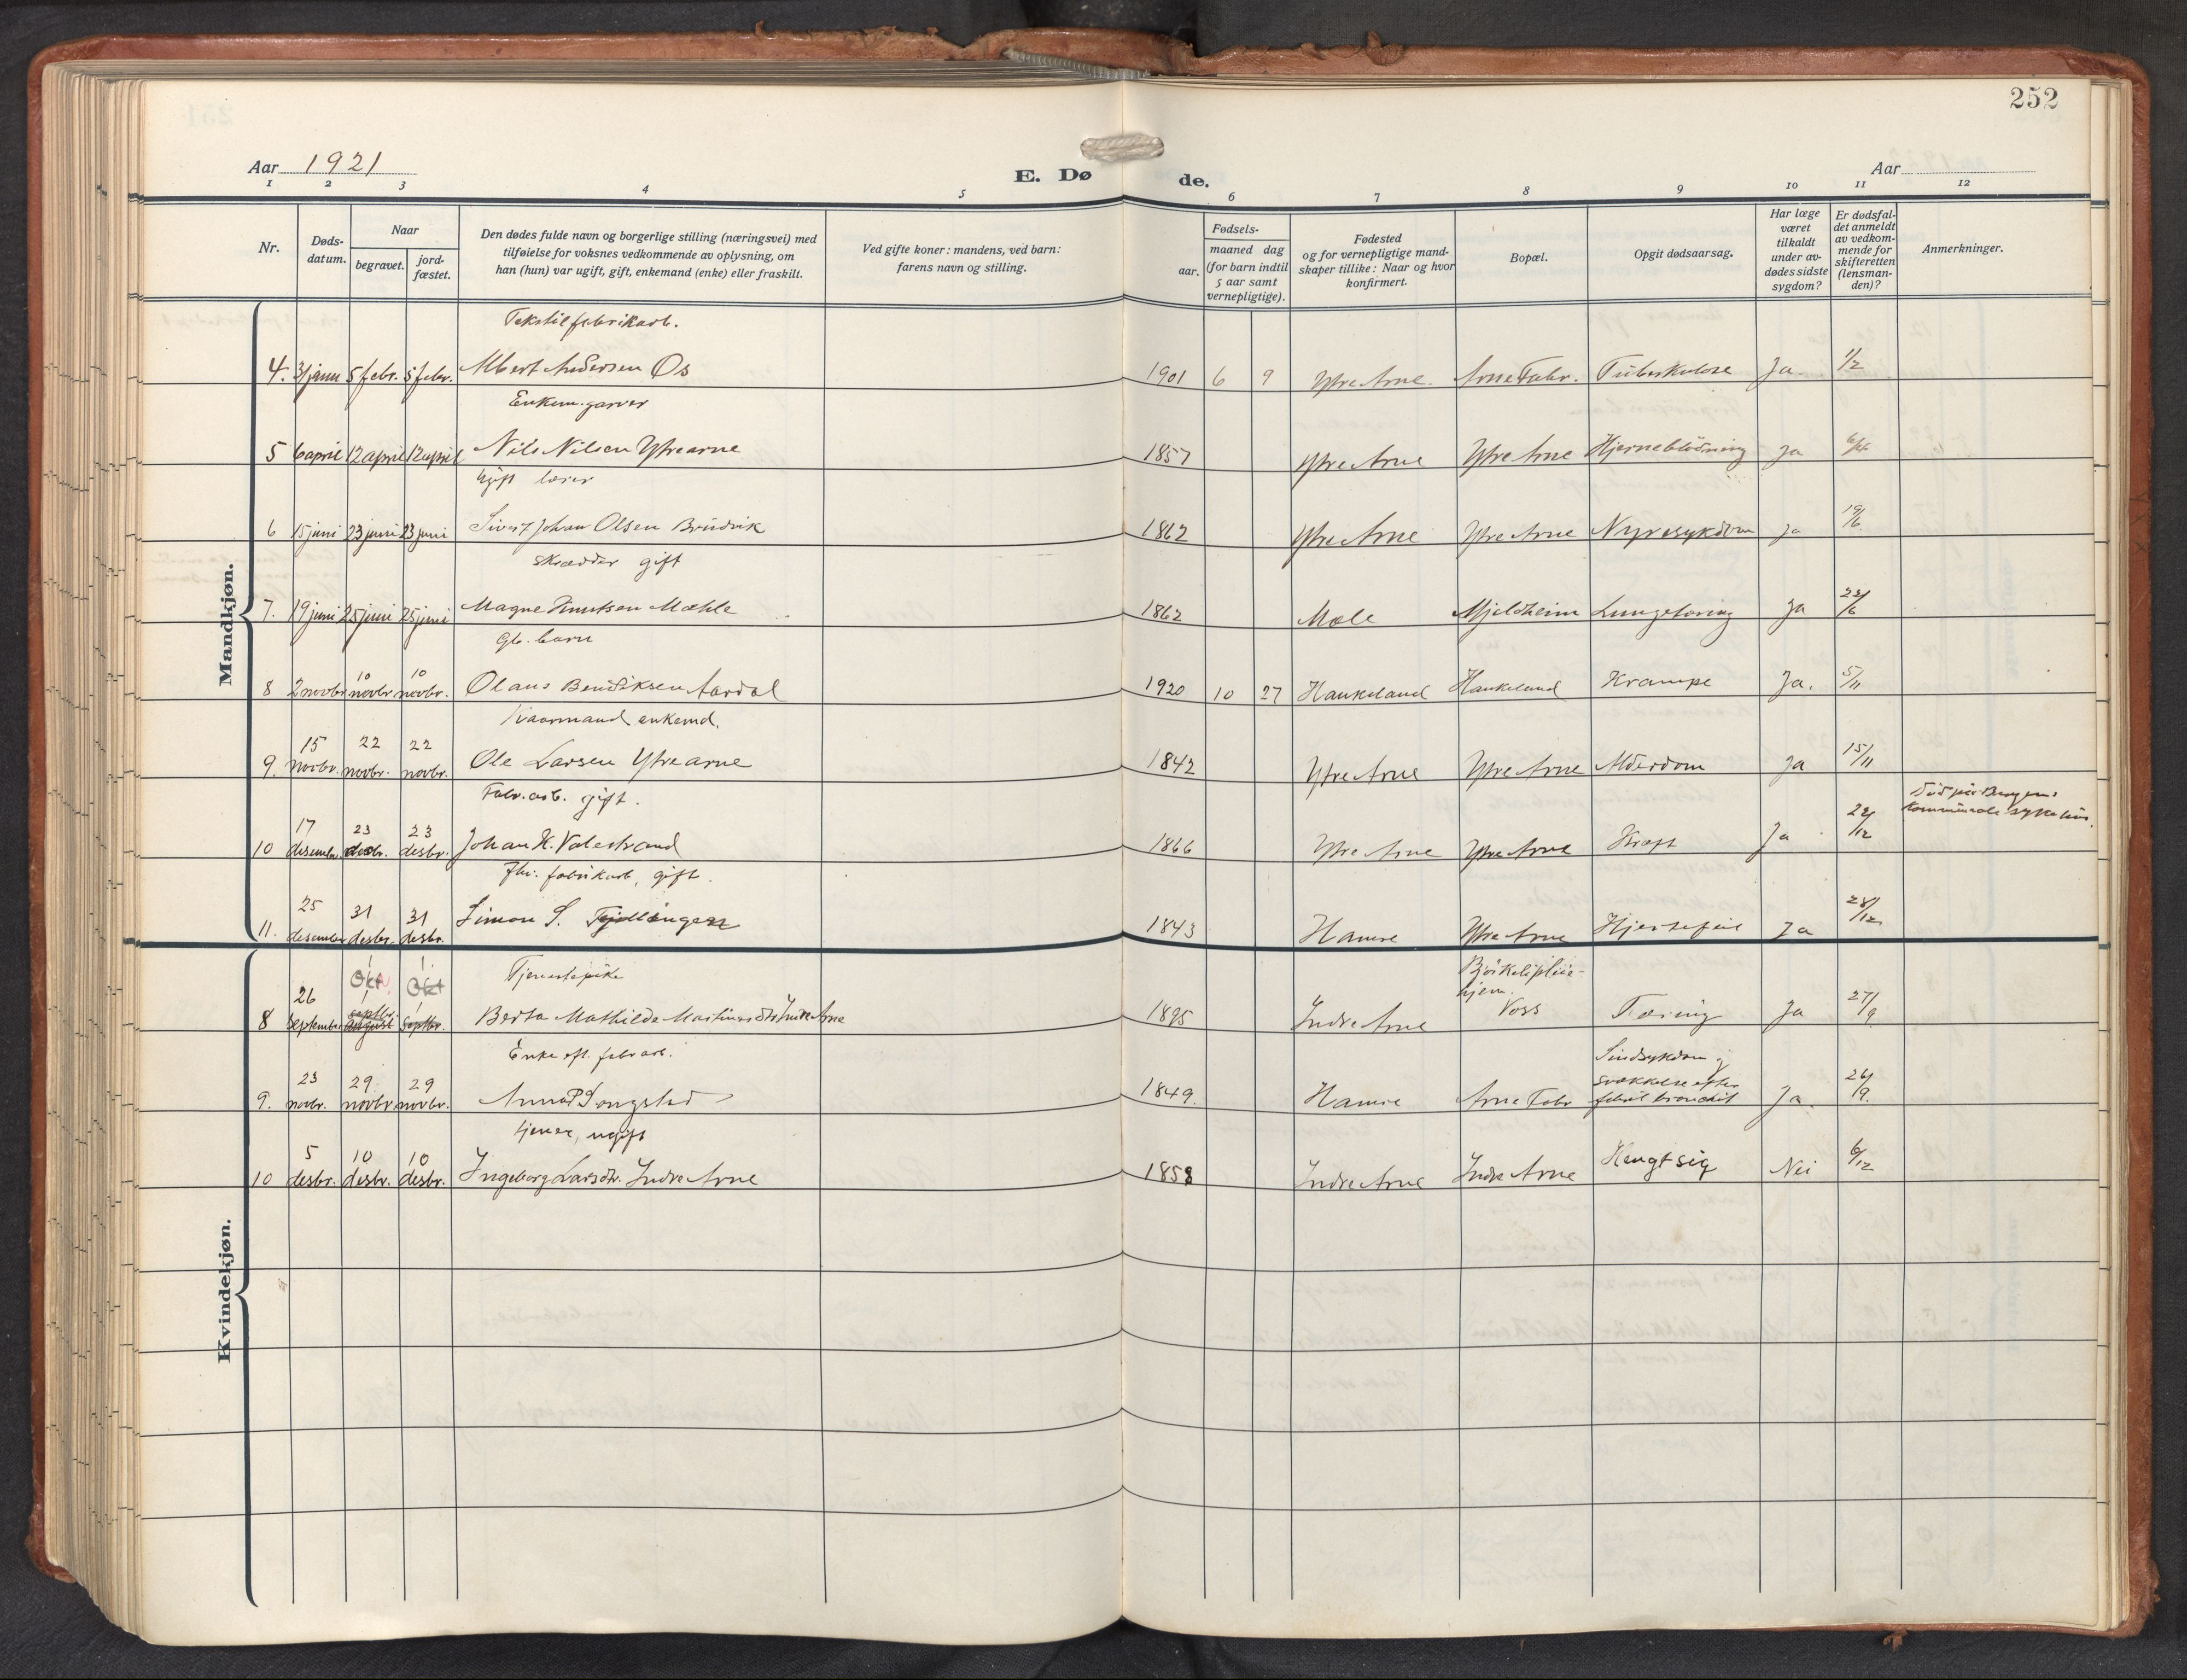 252
Aar 1921
E. Dø de.
Aar
1 2 3 4 5 6 7 8 9 10 11 12
Nr.
Døds-
datum.
Naar
begravet.
jord-
fæstet.
Den dødes fulde navn og borgerlige stilling (næringsvei) med
tilføielse for voksnes vedkommende av oplysning, om
han (hun) var ugift, gift, enkemand (enke) eller fraskilt.
Ved gifte koner: mandens, ved barn:
farens navn og stilling.
Fødsels-
aar.
maaned dag
(for barn indtil
5 aar samt
vernepligtige).
Fødested
og for vernepligtige mand-
skaper tillike: Naar og hvor
konfirmert.
Bopæl.
Opgit dødsaarsag.
Har læge
været
tilkaldt
under av-
dødes sidste
sygdom?
Er dødsfal-
det anmeldt
av vedkom-
mende for
skifteretten
(lensman-
den)?
Anmerkninger.
Mandkjøn.
Tekstilfabrikarb.
4. 31 janu 5 febr. 5 febr. Albert Andersen Os 1901 6 9 Ytre Arne. Arne Fabr. Tuberkulose Ja. 1/2
Enkem. garver
5 6 april 12 april 12 april Nils Nilsen Ytrearne 1857 Ytre Arne Ytre Arne Hjerneblödning Ja
Ugift lærer
6 15 juni 23 juni 23 juni Sivert Johan Olsen Brudvik 1862 Ytre Arne Ytre Arne Nyresykdom Ja 19/6
Skrædder gift
7. 19 juni 25 juni 25 juni Magne Knutsen Mæhle 1862 Mæle Mjeldheim Lungetæring Ja 22/6
Gb. barn
8 2 novbr 10 novbr 10 novbr. Olaus Bendiksen Aardal 1920 10 27 Haukeland Haukeland Krampe Ja. 5/11
Kaarmand enkemd.
9. 15 novbr. 22 novbr. 22 novbr. Ole Larsen Ytrearne 1842 Ytre Arne Ytre Arne Alderdom Ja 15/11
Fabr. arb. gift.
Död på Bergens
kommunale sykehus.
10 17 desember 23 desbr. 23 desbr. Johan K. Valestrand 1866 Ytre Arne Ytre Arne Kræft Ja 22/12
fabrikarb, gift.
11. 25 desember 31 desbr. 31 desbr. Simon S. 1843 Hamre Ytre Arne Hjertefeil Ja 28/12
Kvindekjøn.
Tjenestepike
Björkeli pleie-
hjem.
8 26 September 1 Okt septbr. august 1 Okt septbr. Berta Mathilde Martinusdtr Indre Arne 1895 Indre Arne Voss Tæring Ja 27/9
Enke eft. fabr arb.
Sindsykdom og
svækkelse efter
febril bronchit
9. 23 novbr. 29 novbr. 29 novbr. Anna P Songstad 1849. Hamre Arne Fabr Ja. 26/9.
tjener, ugift
10 5 desbr. 10 desbr. 10 desbr. Ingeborg Larsdtr. Indre Arne 1858 Indre Arne Indre Arne Hengt sig Nei 6/12